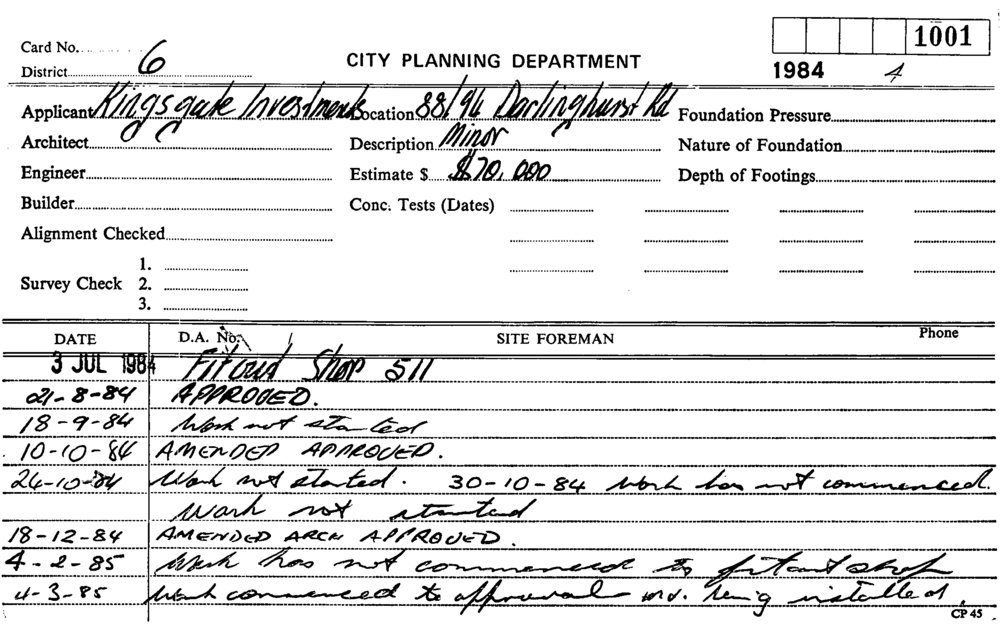 1001
Card No. 6
CITY PLANNING DEPARTMENT
1984 4
District
Applicant Kingsgate Investments Location 88/96 Darlinghurst Rd Foundation Pressure
Architect Description Minor Nature of Foundation
Engineer Estimate $ $70,000 Depth of Footings
Builder Conc. Tests (Dates)
Alignment Checked
1.
Survey Check 2.
3.
DATE D.A. No. SITE FOREMAN Phone
3 JUL 1984 Fitout Shop 511
21-8-84 APPROVED.
18-9-84 Work not started
10-10-84 AMENDED APPROVED.
24-10-84 Work not started. 30-10-84 Work has not commenced.
Work not started
18-12-84 AMENDED ARCH APPROVED.
4-2-85 Work has not commenced to fitout shop
4-3-85 Work commenced to approval being installed.
CP 45